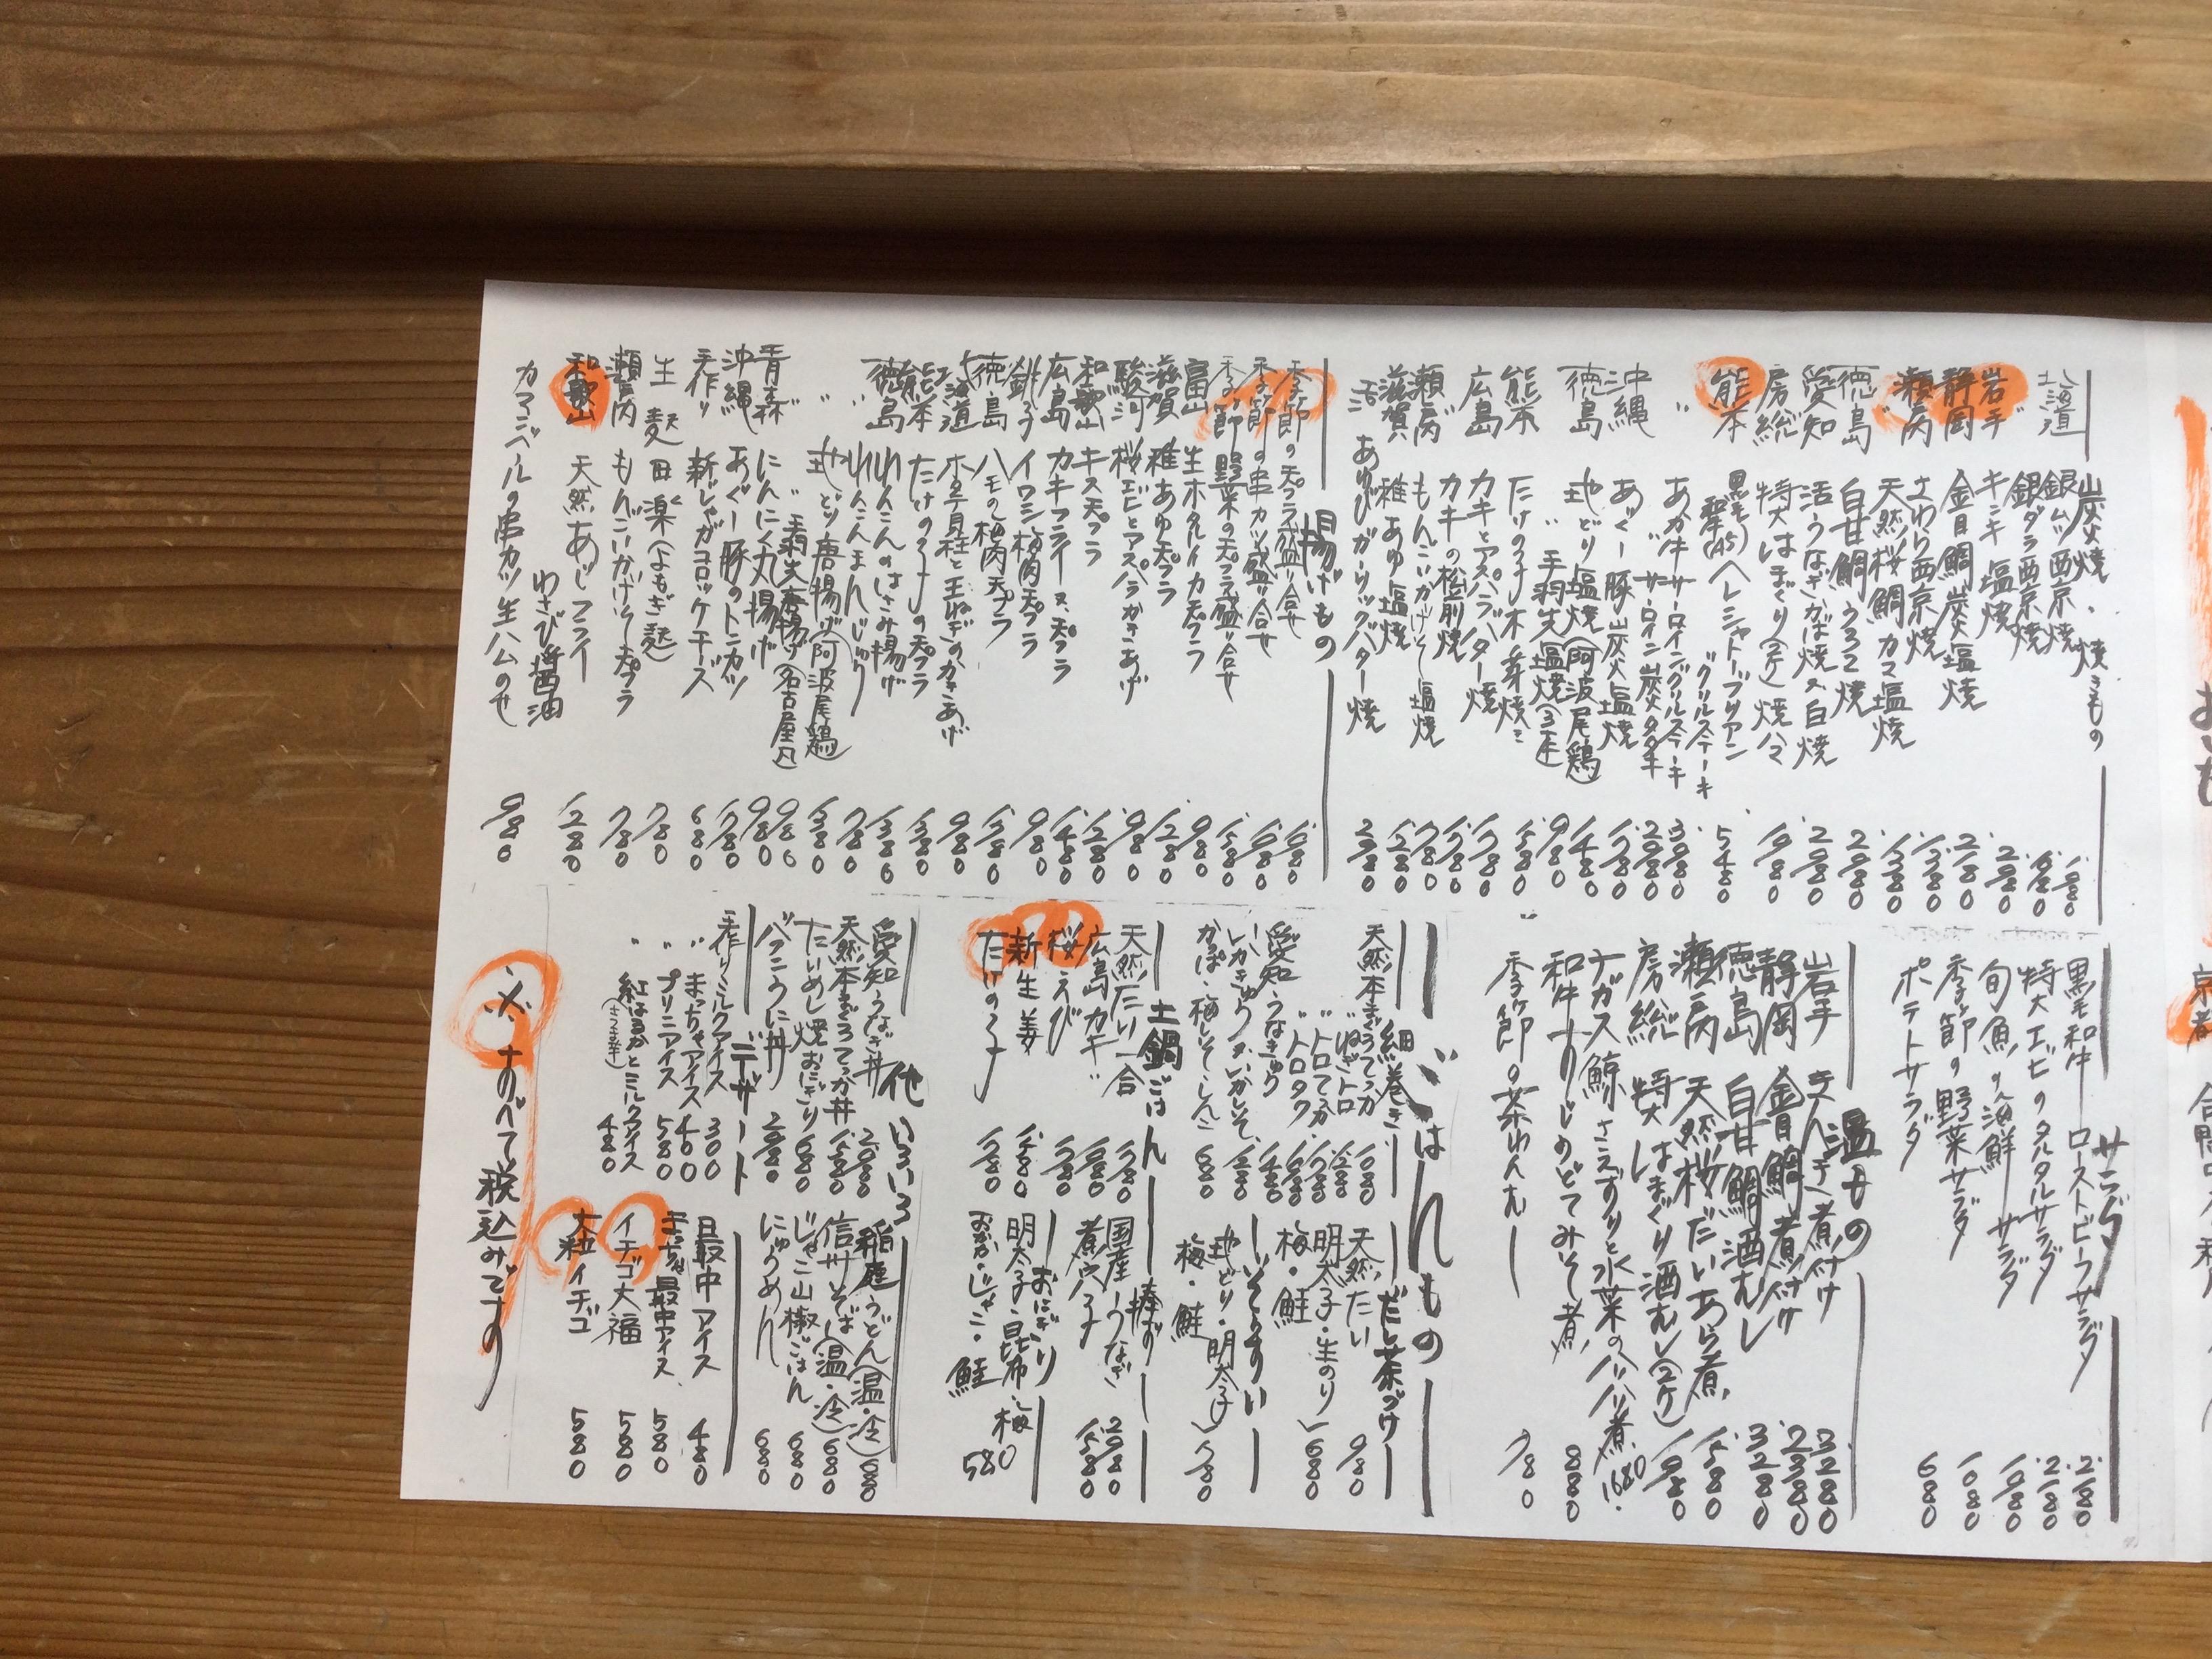 炭火焼・焼きもの
北海道 銀ムツ西京焼 1.680
銀ダラ西京焼 1.680
岩手 キンキ塩焼
静岡 金目鯛炭塩焼
瀬戸内 さわら西京焼 1.380
天然桜鯛カマ塩焼 1.380
徳島 白甘鯛うろこ焼 2.980
愛知 活うなぎかば焼又白焼 2.980
房総 特大はまぐり(2ケ)焼ハマ 1.980
熊本 黒毛和牛(A5)ヘレシャトーブリアン 5.480
〃グリルステーキ
あか牛サーロイングリルステーキ 3.980
〃 〃サーロイン炭タタキ 2.980
沖縄 あぐー豚炭火塩焼 1.780
徳島 地どり塩焼(阿波尾鶏) 1.480
〃手羽先塩焼(3本) 980
熊本 たけの子木ノ芽焼 1.580
広島 カキとアスパラバター焼 1.780
カキの松前焼 1.780
瀬戸内 もんごいかげそ塩焼 780
滋賀 稚あゆ塩焼 1.280
活あわびガーリックバター焼 2.980
揚げもの
季節の天プラ盛り合せ 1.680
季節の串カツ盛り合せ 1.980
季節野菜の天プラ盛り合せ 1.580
富山 生ホタルイカ天プラ 980
滋賀 稚あゆ天プラ 1.280
駿河 桜エビとアスパラかきあげ 980
和歌山 キス天プラ 1.280
広島 カキフライ又天プラ 1.480
銚子 イワシ梅肉天プラ 980
徳島 ハモの梅肉天プラ 1.580
北海道 ホタテ貝柱と玉ねぎのかきあげ 980
熊本 たけの子の天プラ 1.380
徳島 れんこんのはさみ揚げ 1.380
〃 れんこんまんじゅう 780
〃 地どり唐揚げ(阿波尾鶏) 1.380
〃手羽先唐揚げ(名古屋風) 980
青森 にんにく丸揚げ 980
沖縄 あぐー豚のトンカツ 1.780
手作り 新じゃがコロッケチーズ 680
生麩 田楽(よもぎ麩) 780
瀬戸内 もんごいかげそ天プラ 780
和歌山 天然あじフライ わさび醤油 1.280
カマンベールの串カツ生ハムのせ 980
サラダ
黒毛和牛ローストビーフサラダ 2.180
特大エビのタルタルサラダ 2.180
旬魚の海鮮サラダ 1.980
季節の野菜サラダ 1.080
ポテトサラダ 680
温もの
岩手 きんき煮付け 3.280
静岡 金目鯛煮付け 2.380
徳島 白甘鯛酒むし 3.280
瀬戸内 天然桜だいあら煮 1.580
房総 特大はまぐり酒むし(2ケ) 1.980
ナガス鯨さえずりと水菜のハリハリ煮 1680.
和牛すじのどてみそ煮 880
季節の茶わんむし 780
ごはんもの
細巻き
天然本まぐろてっか 1.080
〃ねぎトロ 1.280
〃トロてっか
〃トロタク 1.680
愛知うなきゅう 1.480
いかきゅう・いかしそ 1.280
かっぱ・梅しそ・しんこ 680
だし茶づけ
天然たい 980
明太子・生のり 梅・鮭 680
ぞうすい
地どり・明太子 梅・鮭 780
土鍋ごはん
天然たい一合 1.780
広島カキ 1.980
桜えび 1.780
新生姜 1.480
たけの子 1.780
棒ずし
国産うなぎ 2.980
煮穴子 1.580
おにぎり
明太子・昆布・梅 おかか・じゃこ・鮭 580
他いろいろ
愛知うなぎ丼 2.980
天然本まぐろてっか丼 1.580
たいめし焼おにぎり 680
バフンうに丼 2.980
稲庭うどん(温・冷) 680
信州そば(温・冷) 680
じゃこ山椒ごはん 680
にゅうめん 680
デザート
手作りミルクアイス 300
〃 まっちゃアイス 400
〃 プリンアイス 580
〃 紅はるかとミルクアイス(さつま芋) 480
最中アイス 480
まっちゃ最中アイス 580
イチゴ大福 580
大粒イチゴ 580
※すべて税込みです